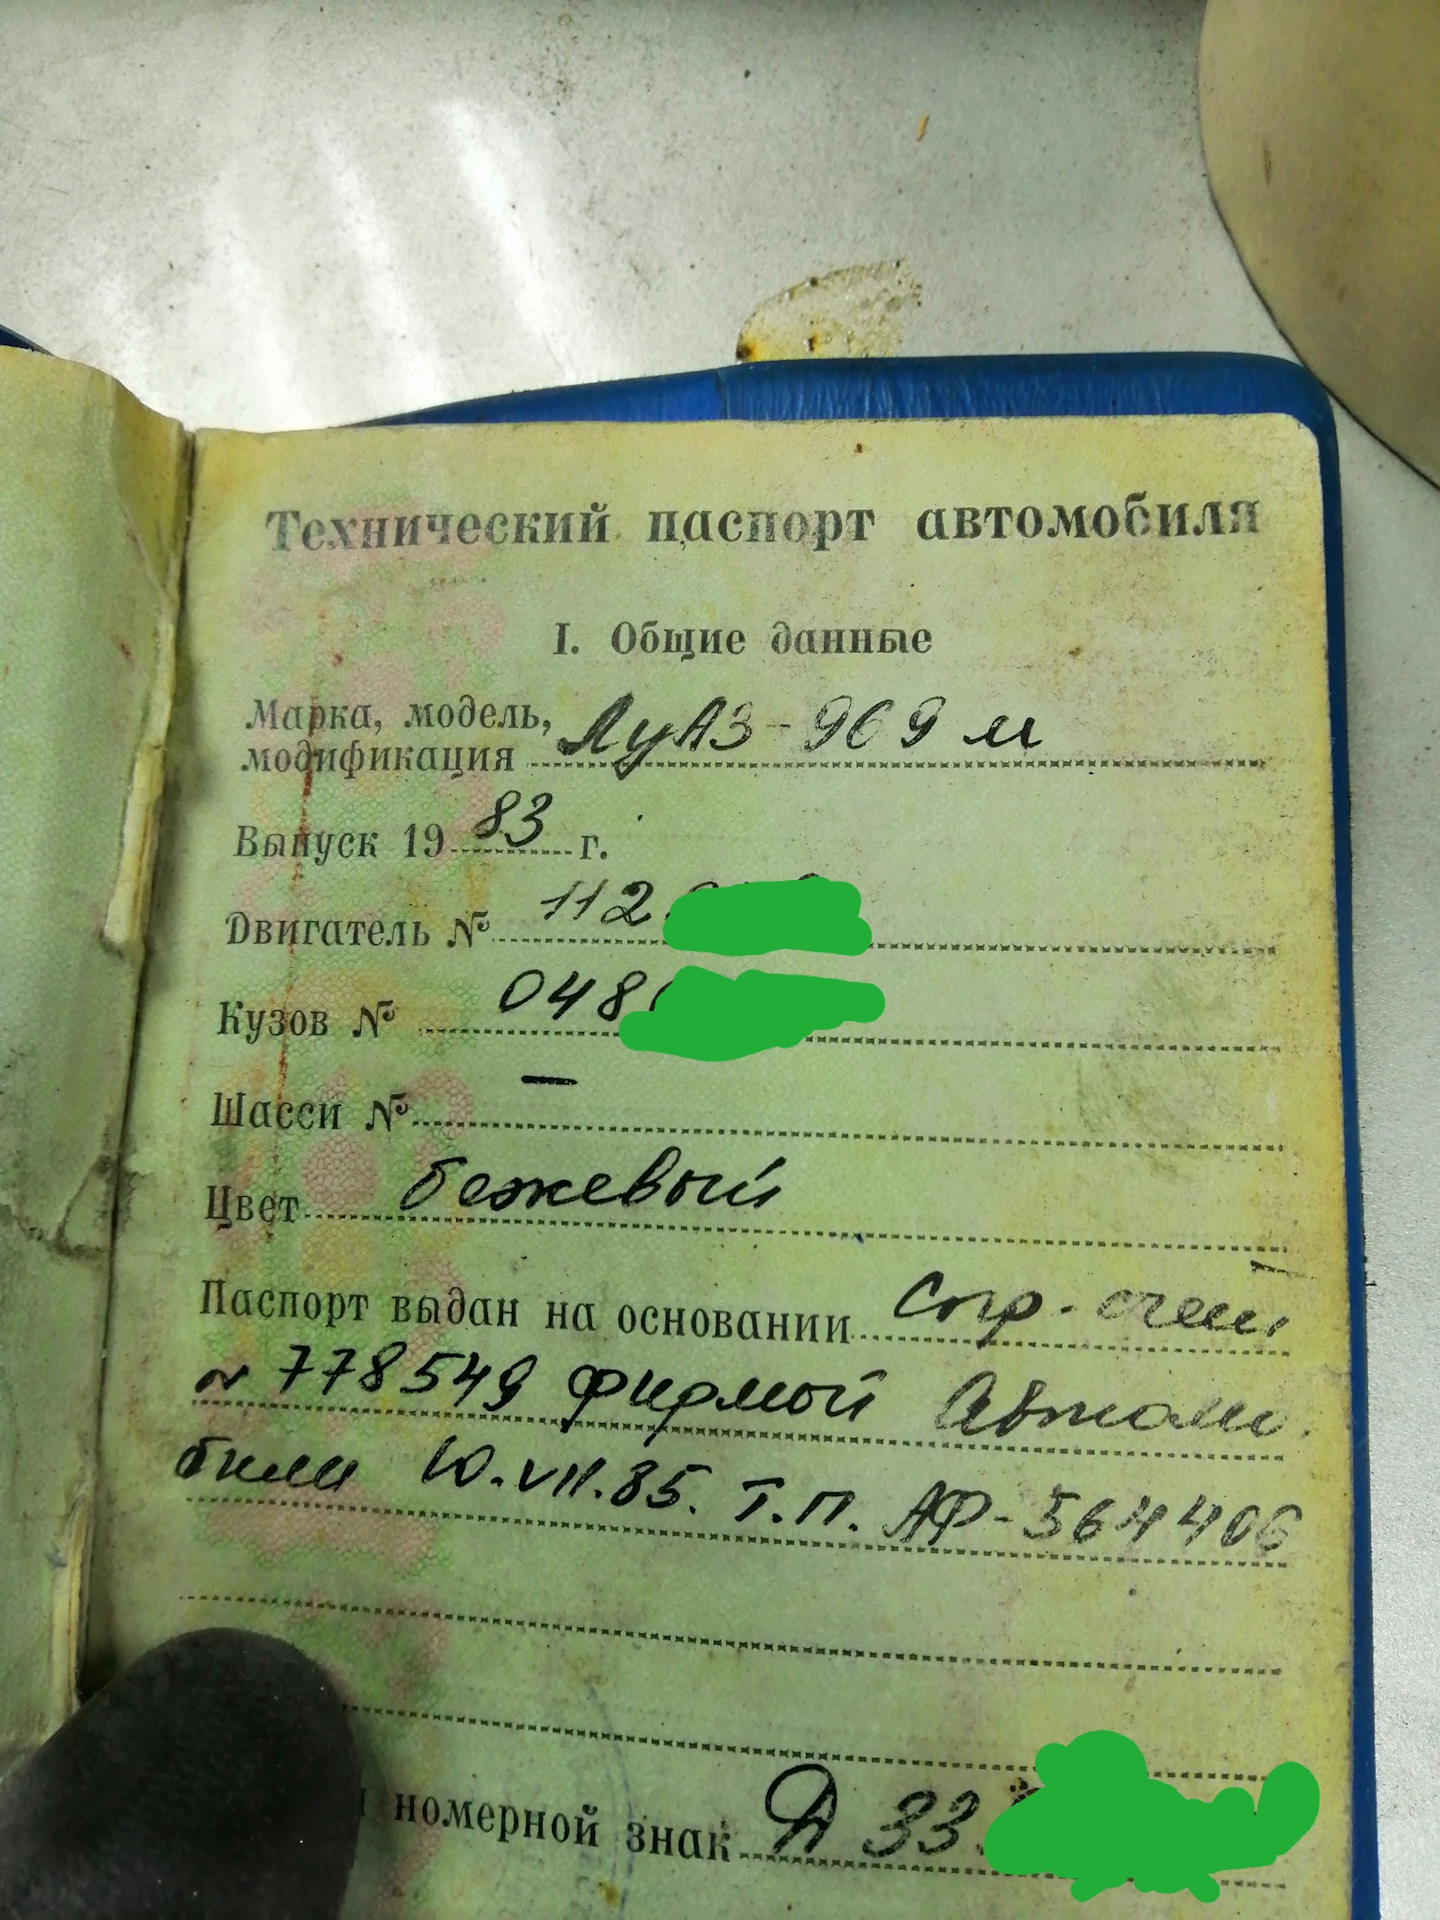 Технический паспорт автомобиля
I. Общие данные
Марка, модель,
модификация ЛуАЗ-969 м
Выпуск 1983 г.
Двигатель № 112
Кузов № 048
Шасси № —
Цвет бежевый
Паспорт выдан на основании Спр-счет
№ 778549 фирмой Автомо
били 10.VII.85. Т.П. АФ-564406
номерной знак Д 33